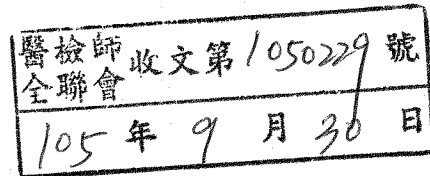 醫檢師全聯會收文第1050229號
105年9月30日